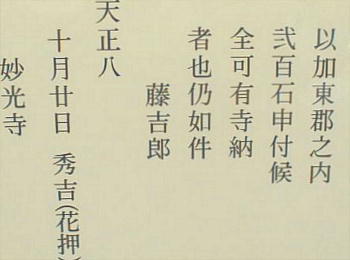 以加東郡之内
弐百石申付候
全可有寺納
者也仍如件
藤吉郎
天正八
十月廿日 秀吉(花押)
妙光寺